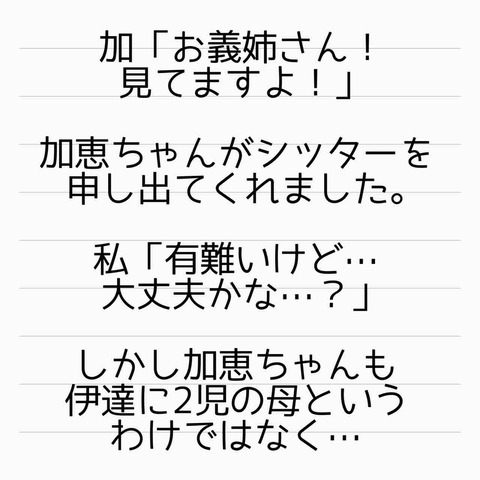 加「お義姉さん！
見てますよ！」
加恵ちゃんがシッターを
申し出てくれました。
私「有難いけど…
大丈夫かな…？」
しかし加恵ちゃんも
伊達に2児の母という
わけではなく…